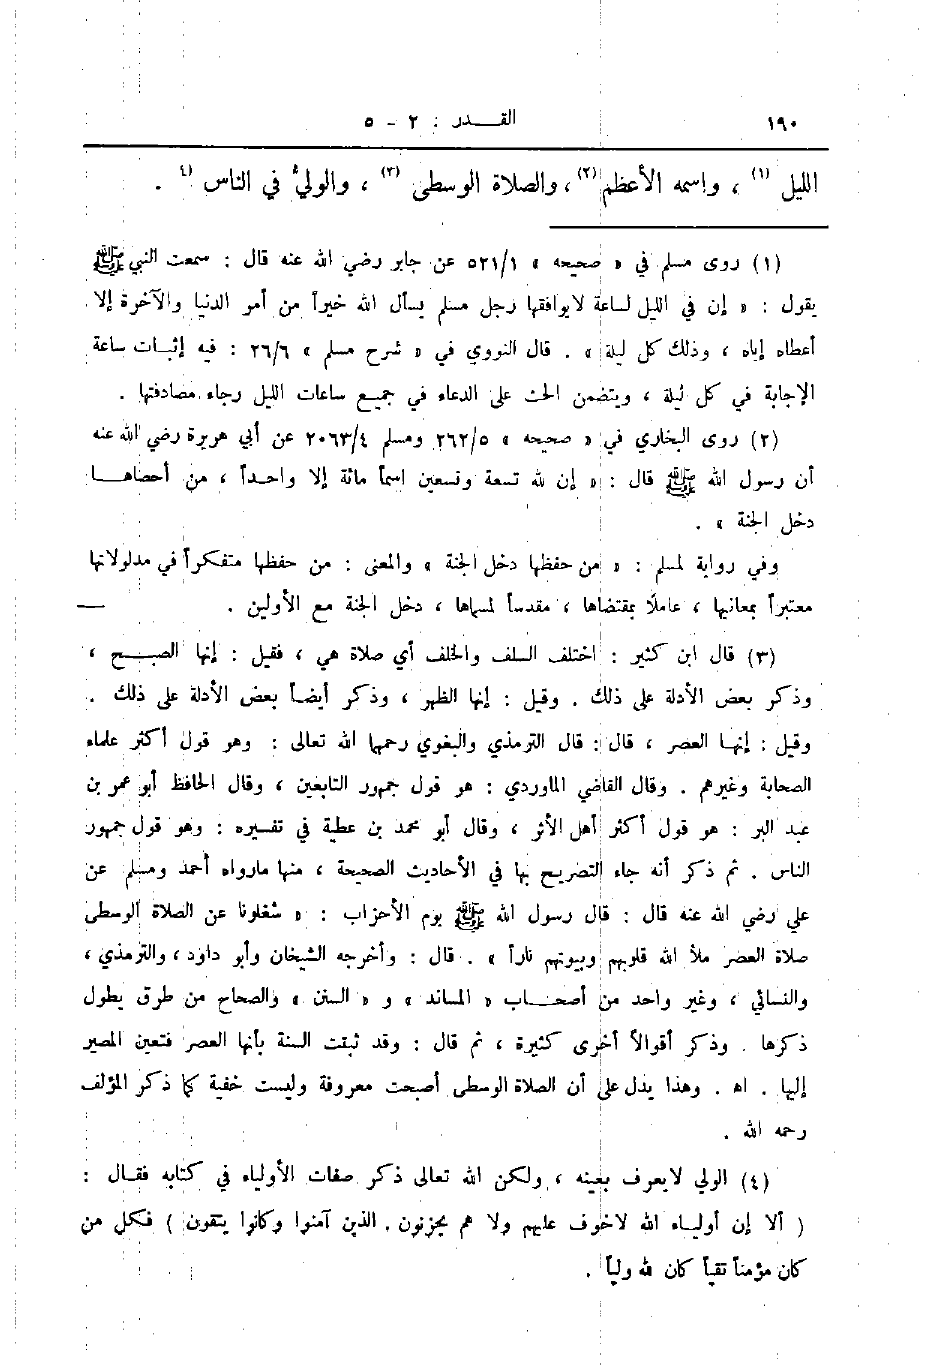 ١٩٠
القـــدر : ٢ - ٥
الليل (١) ، واسمه الأعظم (٢) ، والصلاة الوسطى (٣) ، والولي في الناس (٤) .
(١) روى مسلم في « صحيحه » ٥٢١/١ عن جابر رضي الله عنه قال : سمعت النبي ﷺ
يقول : « إن في الليل لساعة لايوافقها رجل مسلم يسأل الله خيراً من أمر الدنيا والآخرة إلا
أعطاه إياه ، وذلك كل ليلة » . قال النووي في « شرح مسلم » ٢٦/٦ : فيه إثبات ساعة
الإجابة في كل ليلة ، ويتضمن الحث على الدعاء في جميع ساعات الليل رجاء مصادفتها .
(٢) روى البخاري في « صحيحه » ٢٦٢/٥ ومسلم ٢٠٦٣/٤ عن أبي هريرة رضي الله عنه
أن رسول الله ﷺ قال : « إن لله تسعة وتسعين اسماً مائة إلا واحداً ، من أحصاهــا
دخل الجنة » .
وفي رواية لمسلم : « من حفظها دخل الجنة » والمعنى : من حفظها متفكراً في مدلولاتها
معتبراً بمعانيها ، عاملًا بمقتضاها ، مقدساً لمسماها ، دخل الجنة مع الأولين .
(٣) قال ابن كثير : اختلف السلف والخلف أي صلاة هي ، فقيل : إنها الصبــح ،
وذكر بعض الأدلة على ذلك . وقيل : إنها الظهر ، وذكر أيضاً بعض الأدلة على ذلك .
وقيل : إنهــا العصر ، قال : قال الترمذي والبغوي رحمها الله تعالى : وهو قول أكثر علماء
الصحابة وغيرهم . وقال القاضي الماوردي : هو قول جمهور التابعين ، وقال الحافظ أبو عمر بن
عبد البر : هو قول أكثر أهل الأثر ، وقال أبو محمد بن عطية في تفسيره : وهو قول جمهور
الناس . ثم ذكر أنه جاء التصريح بها في الأحاديث الصحيحة ، منها مارواه أحمد ومسلم عن
علي رضي الله عنه قال : قال رسول الله ﷺ يوم الأحزاب : « شغلونا عن الصلاة الوسطى
صلاة العصر ملأ الله قلوبهم وبيوتهم ناراً » . قال : وأخرجه الشيخان وأبو داود ، والترمذي ،
والنسائي ، وغير واحد من أصحــاب « المساند » و « السنن » والصحاح من طرق يطول
ذكرها . وذكر أقوالاً أخرى كثيرة ، ثم قال : وقد ثبتت السنة بأنها العصر فتعين المصير
إليها . اه . وهذا يدل على أن الصلاة الوسطى أصبحت معروفة وليست خفية كما ذكر المؤلف
رحمه الله .
(٤) الولي لايعرف بعينه ، ولكن الله تعالى ذكر صفات الأولياء في كتابه فقــال :
( ألا إن أوليــاء الله لاخوف عليهم ولا هم يحزنون . الذين آمنوا وكانوا يتقون ) فكل من
كان مؤمناً تقياً كان لله ولياً .